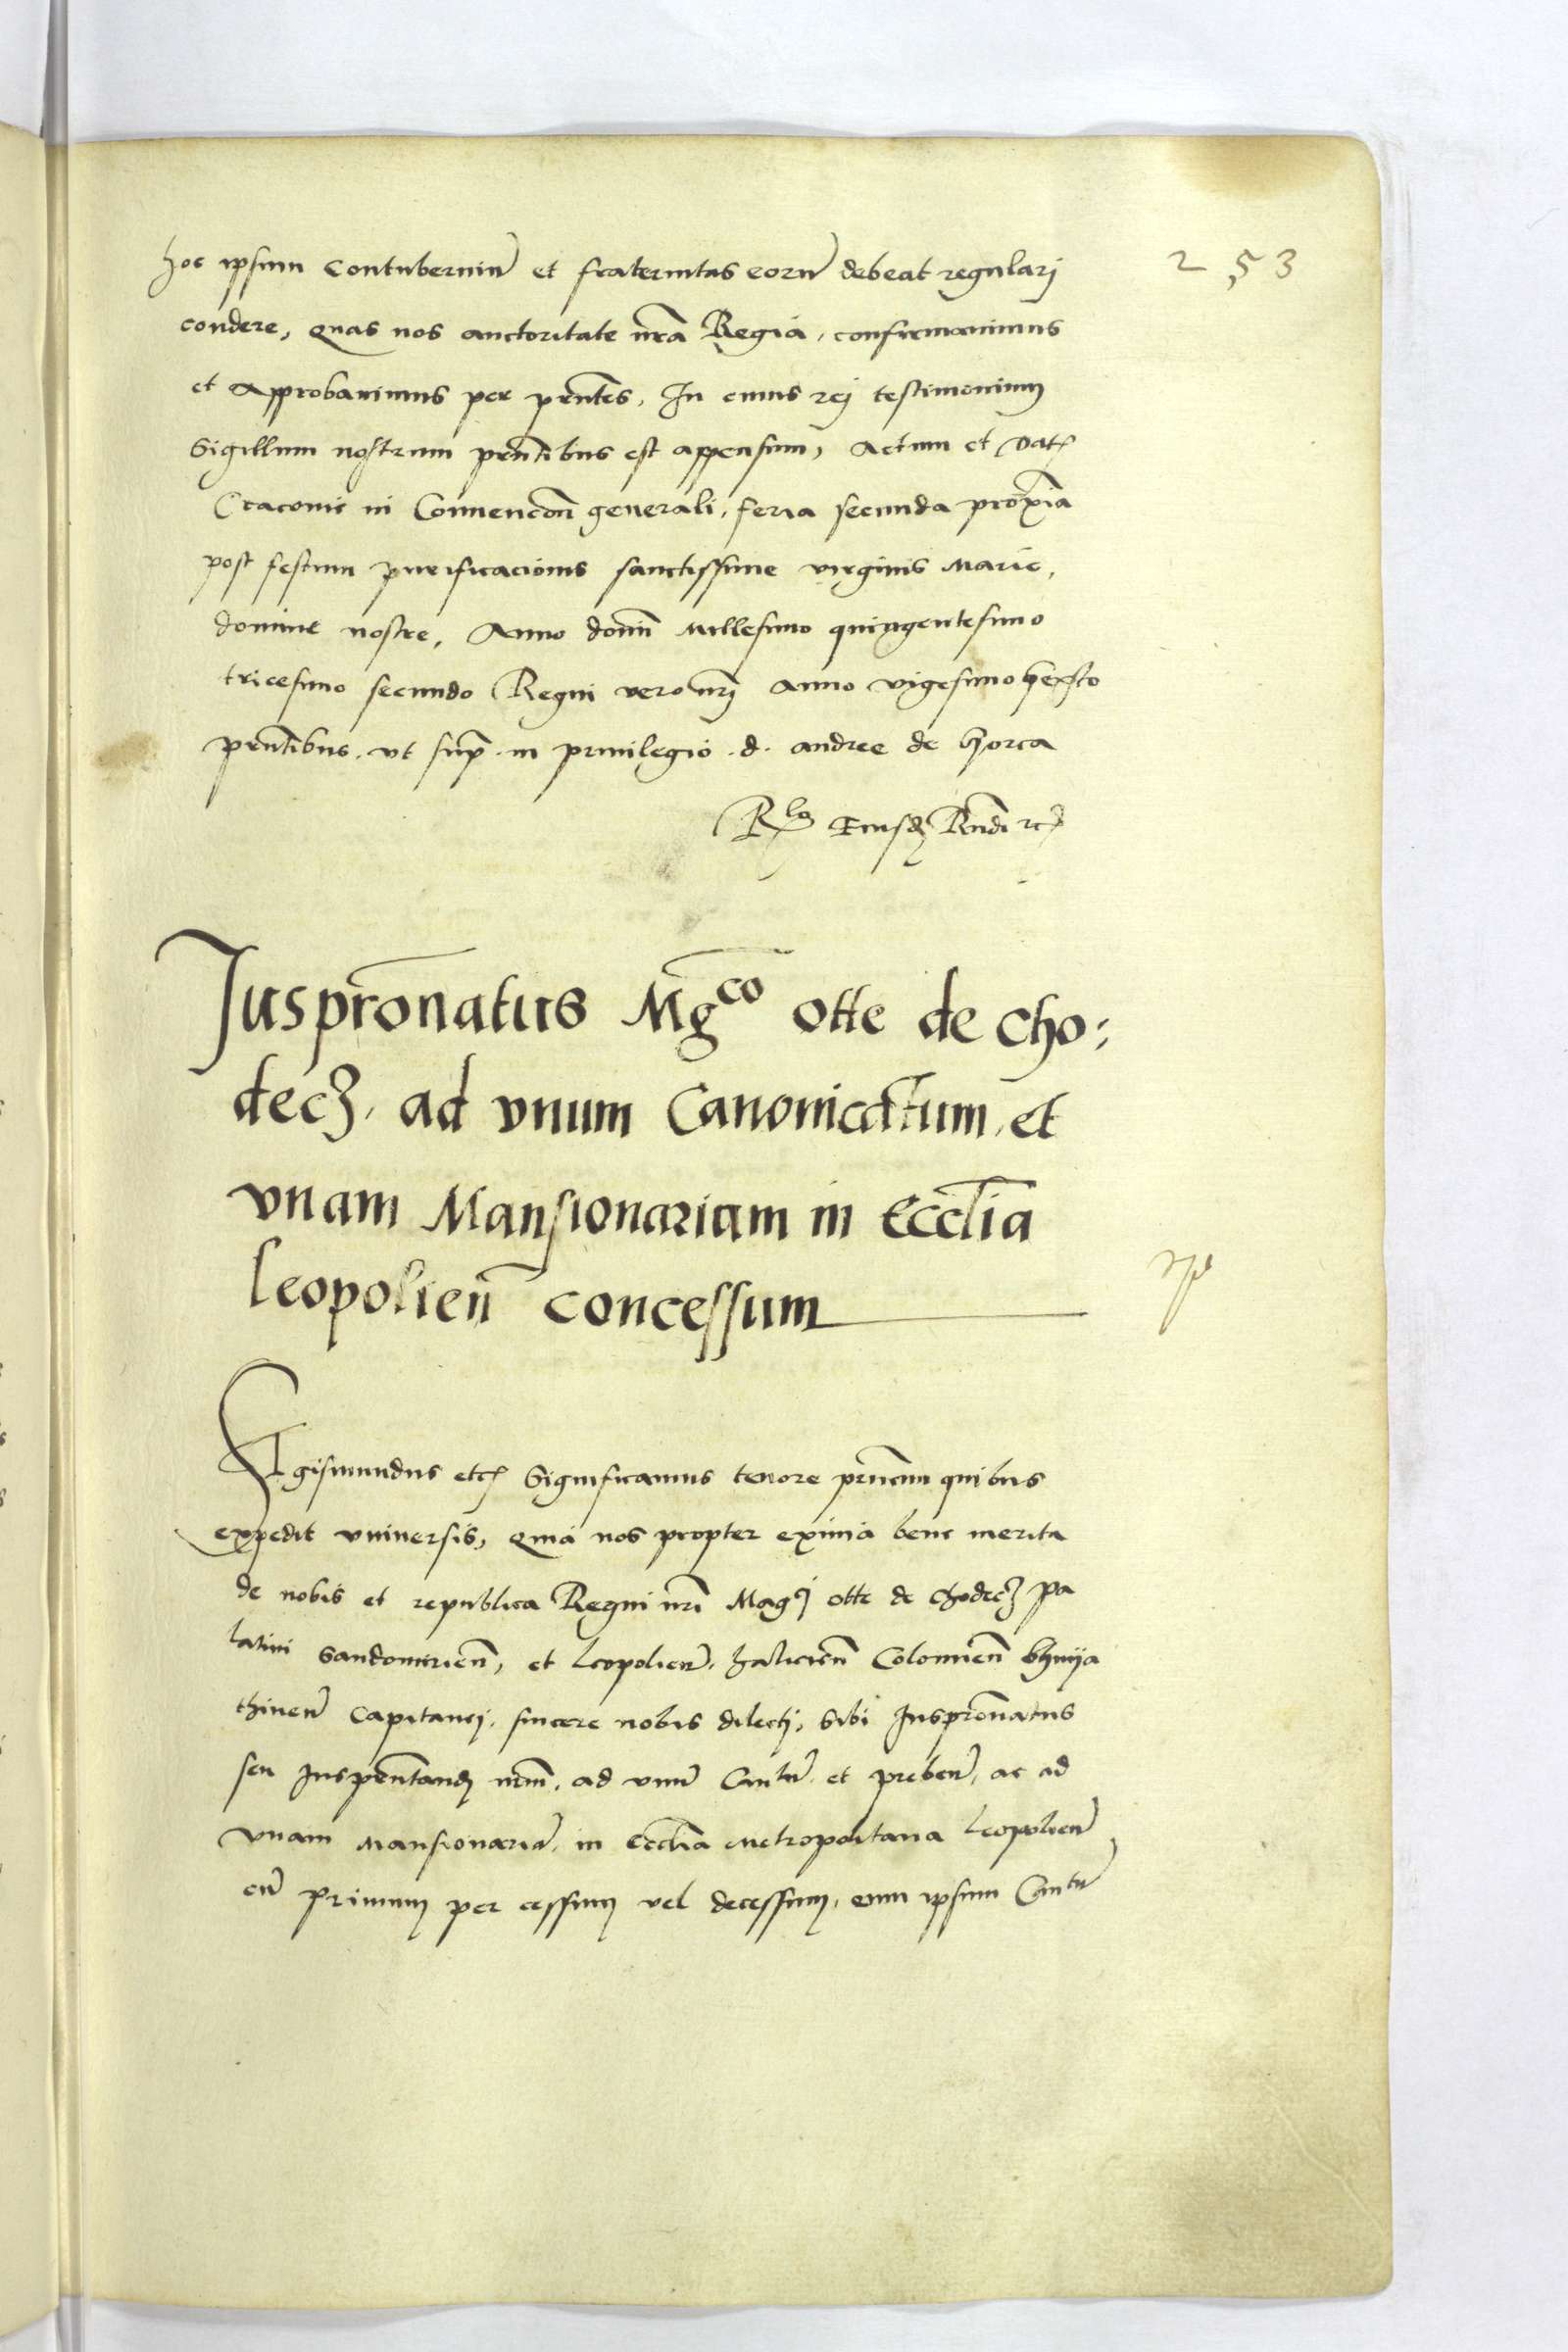 hoc ipsum contuberniu̅ et fraternitas eoru̅ debeat regularj
253
condere, quas nos auctoritate nr̅a Regia, confirmauimus
et Approbauimus per pn̅tes, In cuius rej testimonium
Sigillum nostrum pn̅tibus est appensum, Actum et Dat
Cracouie in Conuenco̅n generali, feria secunda proxi̅a
post festum purificacionis sanctissime virginis Marie,
domine nostre, Anno domi̅ Millesimo quingentesimo
tricesimo secundo Regni vero nrj Anno vigesimosexto
pn̅tibus. vt sup̅. in priuilegio. d. andree de gorca
R^lo Eiusd
Juspr̅onatus Mg^co Otte de Cho:
decz. ad vnum Canonicatum, et
vnam Mansionariam in Eccl̅ia
leopolien̅ concessum
Sigismundus etc Significamus tenore pn̅cium quibus
expedit vniuersis, quia nos propter eximia bene merita
de nobis et republica Regni nr̅i Mag^cj otte de Chodecz pa
latini Sandomirien̅, et leopolien̅, halicien̅ Colomien̅ Snija
thinen̅ Capitanej, sincere nobis dilectj, Sibi Juspr̅onatus
seu Juspn̅tandj nr̅m, ad vnu̅ Can^tu̅ et preben̅, ac ad
vnam Mansionaria̅, in Eccl̅ia Metropolitana leopolien̅
cu̅ primum per cessum vel decessum, eum ipsum Can^tu̅